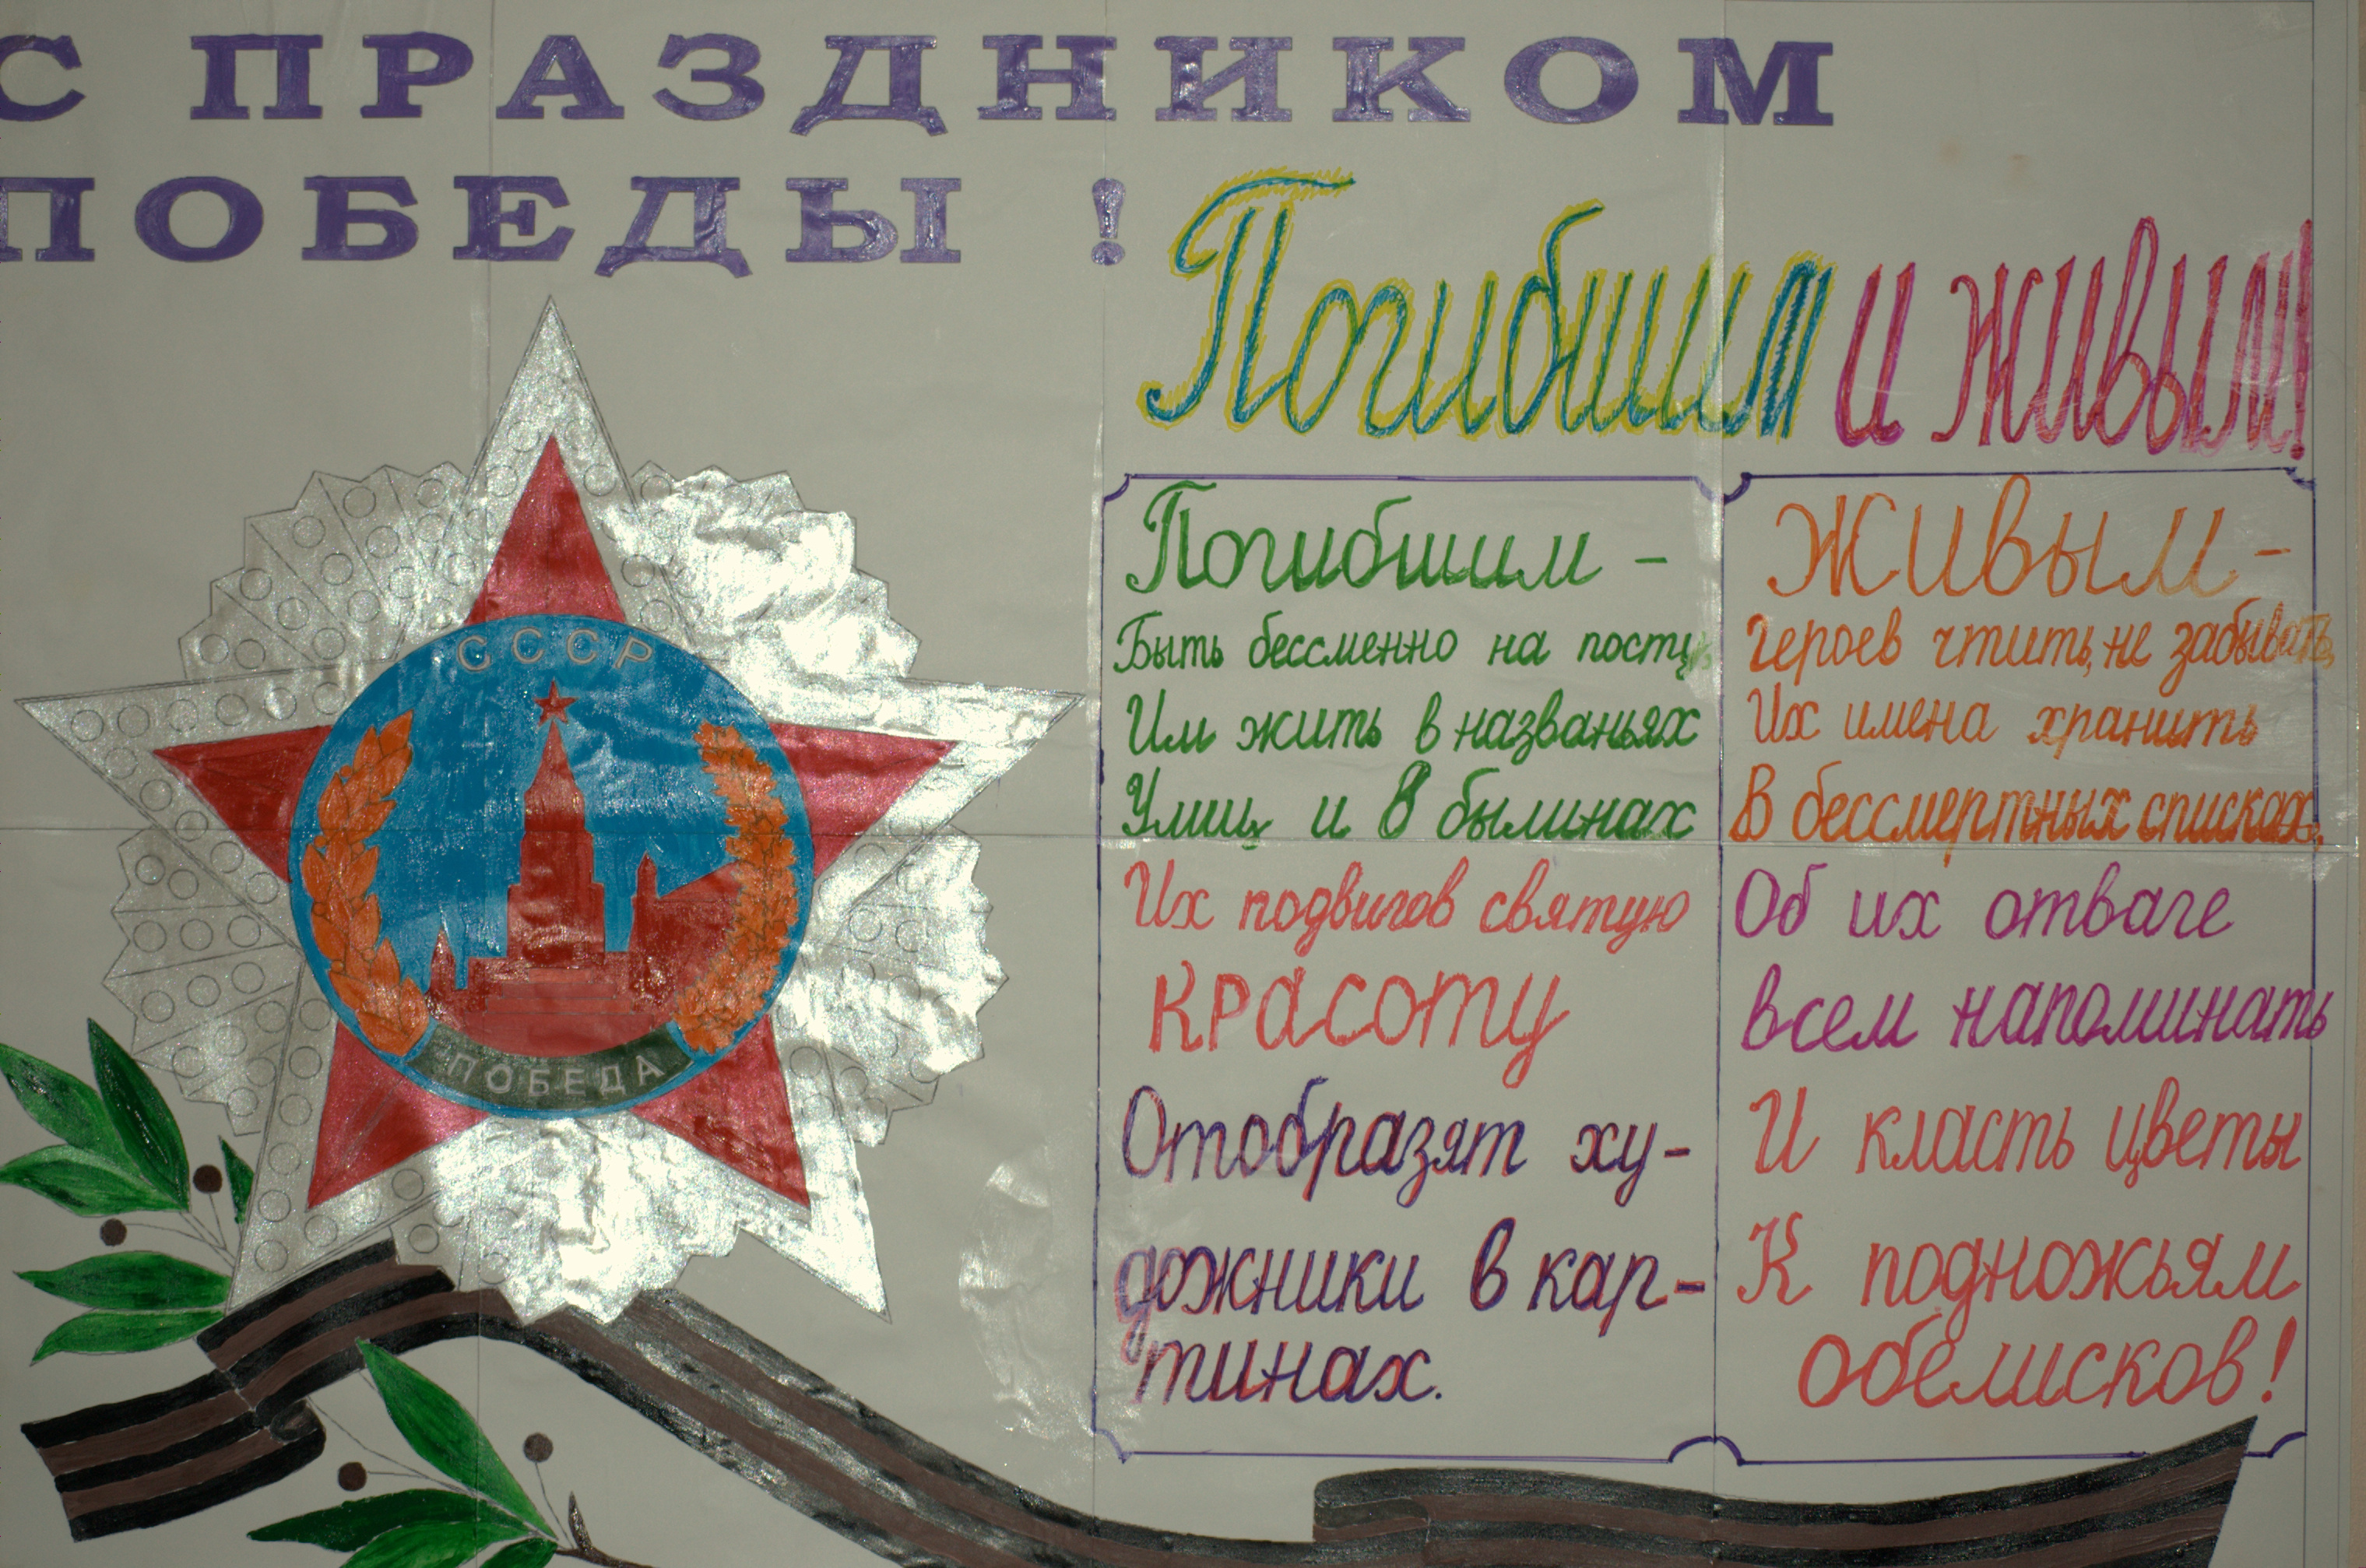 С ПРАЗДНИКОМ
ПОБЕДЫ !
Погибшим и живым!
СССР
ПОБЕДА
Погибшим -
Быть бессменно на посту,
Им жить в названьях
Улиц и в былинах
Их подвигов святую
красоту
Отобразят ху-
дожники в кар-
тинах.
Живым -
Героев чтить, не забывать,
Их имена хранить
В бессмертных списках,
Об их отваге
всем напоминать
И класть цветы
К подножьям
обелисков!